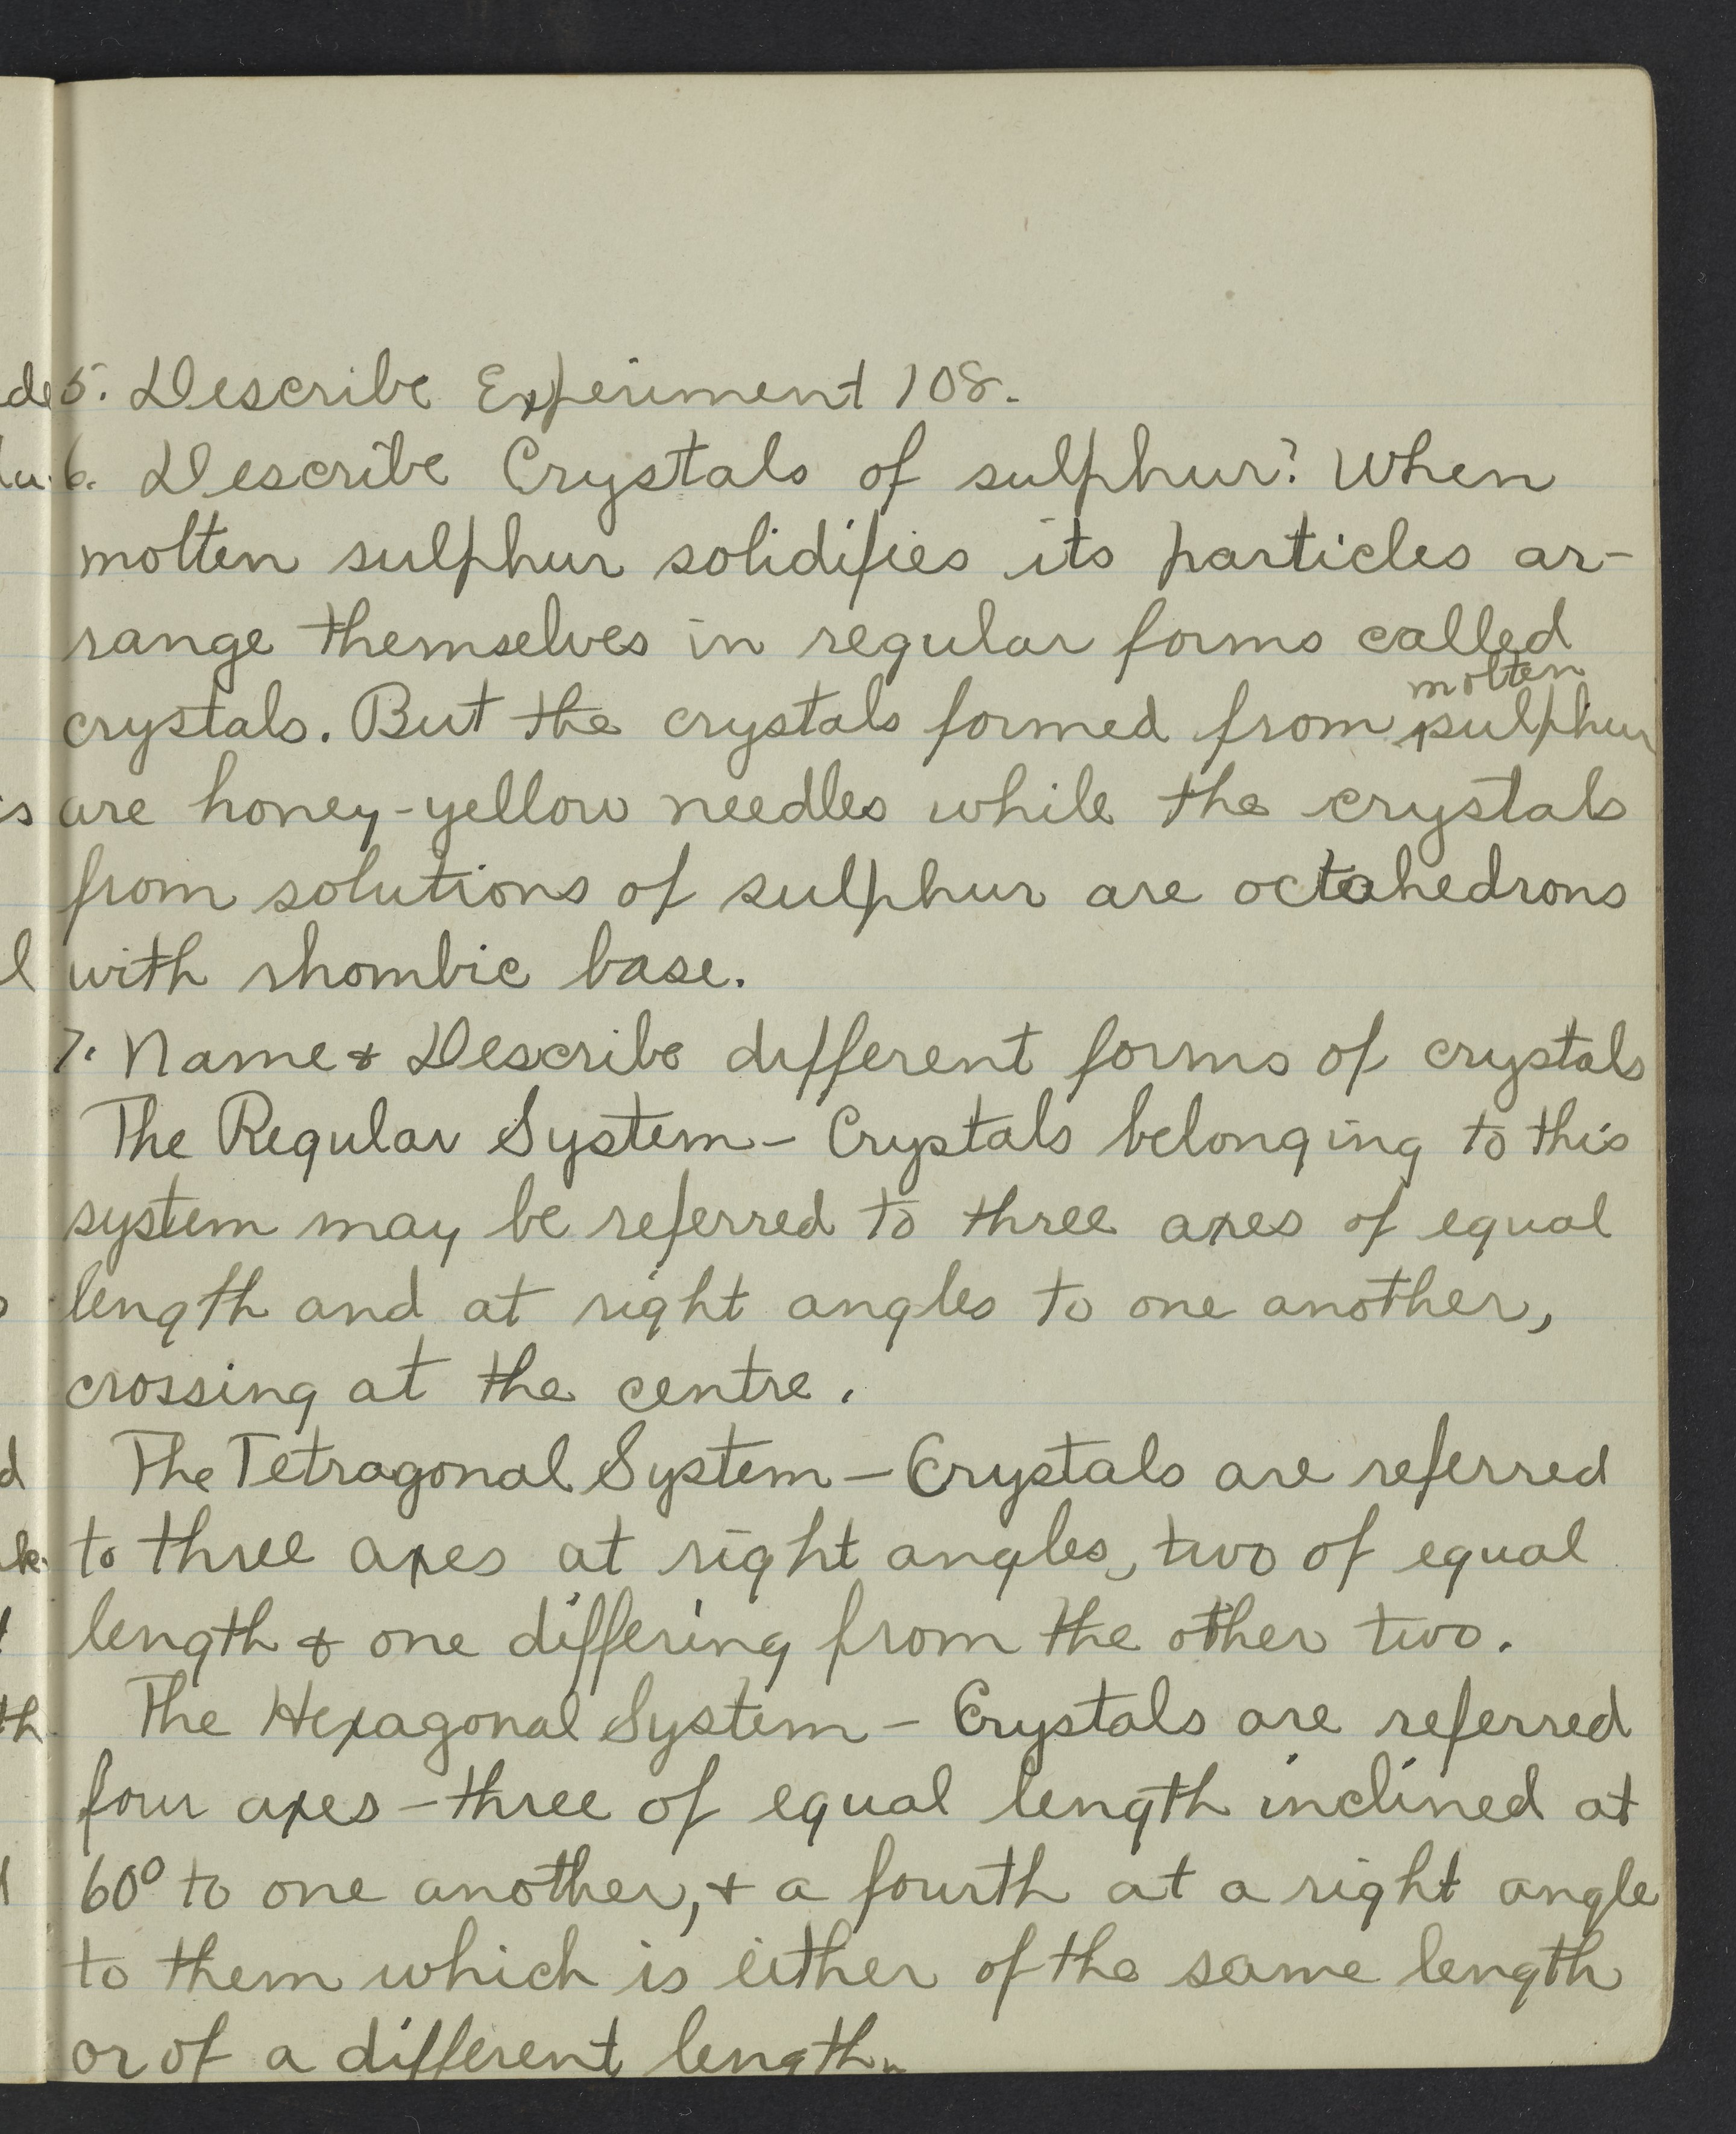 5. Describe Experiment 108.
6. Describe Crystals of sulphur? When
molten sulphur solidifies its particles ar-
range themselves in regular forms called
molten
crystals. But the crystals formed from sulphur
are honey-yellow needles while the crystals
from solutions of sulphur are octahedrons
with rhombic base.
7. Name & Describe different forms of crystals
The Regular System - Crystals belonging to this
system may be referred to three axes of equal
length and at right angles to one another,
crossing at the centre.
The Tetragonal System - Crystals are referred
to three axes at right angles, two of equal
length & one differing from the other two.
The Hexagonal System - Crystals are referred
four axes - three of equal length inclined at
60° to one another, & a fourth at a right angle
to them which is either of the same length
or of a different length.